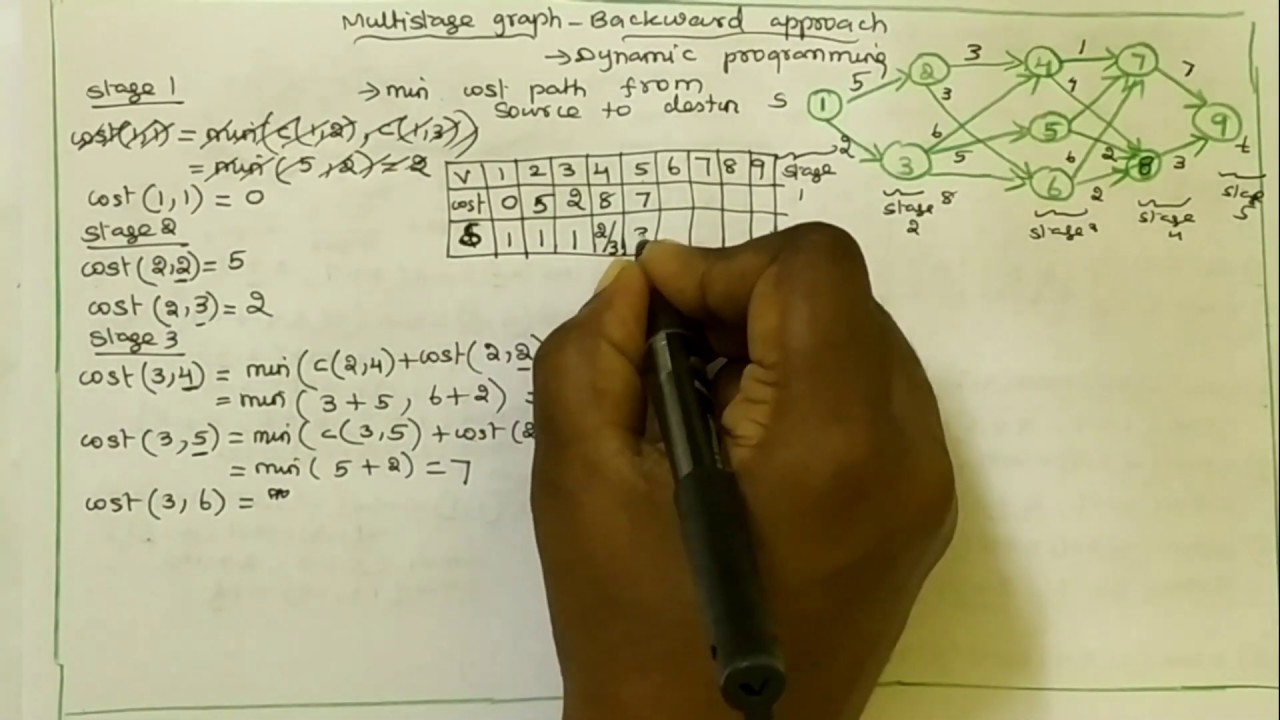 Multistage graph - Backward approach
→ Dynamic programming
→ min cost path from
source to destn
stage 1
cost(1,1) = min(c(1,2), c(1,3))
= min(5,2) = 2
cost(1,1) = 0
stage 2
cost(2,2) = 5
cost(2,3) = 2
stage 3
cost(3,4) = min(c(2,4)+cost(2,2)
= min(3+5, 6+2) =
cost(3,5) = min(c(3,5) + cost(2
= min(5+2) = 7
cost(3,6) =
V 1 2 3 4 5 6 7 8 9
cost 0 5 2 8 7
1 1 1 2/3 3
S 1 2 3 4 5 6 7 8 9 t
5 2 3 3 6 5 8 1 6 2 2 7 3
stage 1
stage 2
stage
stage 4
stage 5